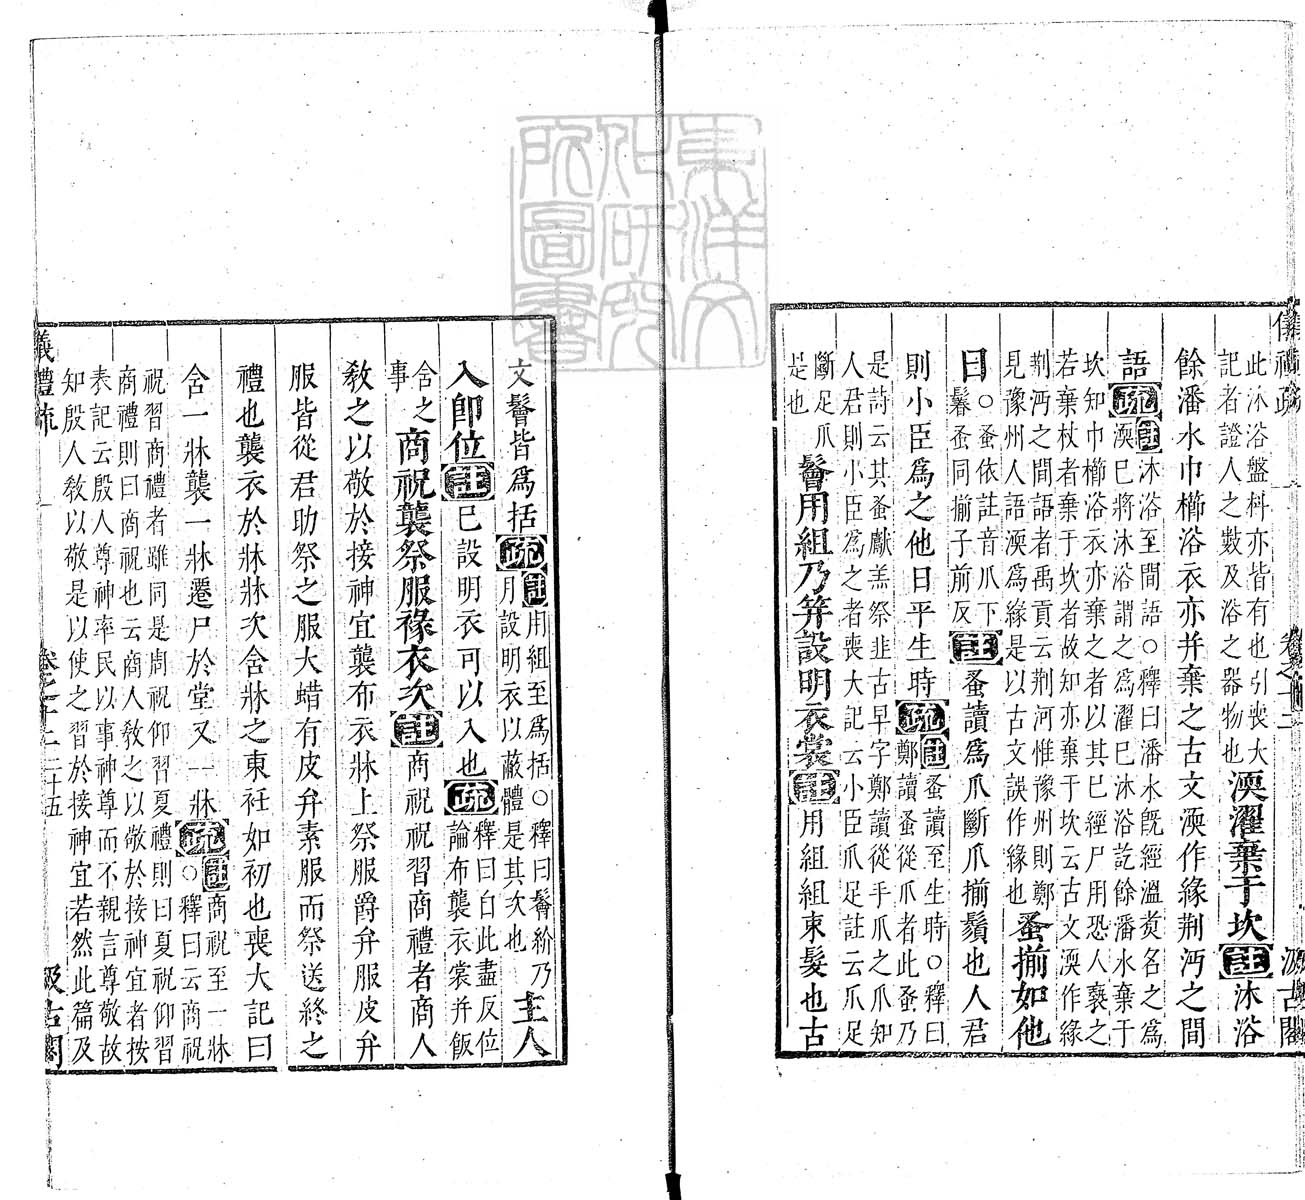 儀禮疏 卷之十二 汲古閣
此沐浴盤枓亦皆有也引喪大
記者證人之數及浴之器物也
渜濯棄于坎註沐浴
餘潘水巾櫛浴衣亦并棄之古文渜作緣荆沔之間
語疏註沐浴至間語○釋曰潘水旣經溫煑名之爲
渜巳將沐浴謂之爲濯巳沐浴訖餘潘水棄于
坎知巾櫛浴衣亦棄之者以其巳經尸用恐人䙝之
若棄杖者棄于坎者故知亦棄于坎云古文渜作緣
荆沔之間語者禹貢云荆河惟豫州則鄭
見豫州人語渜爲緣是以古文誤作緣也
蚤揃如他
日○蚤依註音爪下
鬊蚤同揃子前反
註蚤讀爲爪斷爪揃鬚也人君
則小臣爲之他日平生時疏註蚤讀至生時○釋曰
鄭讀蚤從爪者此蚤乃
是詩云其蚤獻羔祭韭古早字鄭讀從手爪之爪知
人君則小臣爲之者喪大記云小臣爪足註云爪足
斷足爪
是也
鬠用組乃笄設明衣裳註用組組束髮也古
文鬠皆爲括疏註用組至爲括○釋曰鬠紒乃
月設明衣以蔽體是其次也
主人
入即位註巳設明衣可以入也疏釋曰自此盡反位
論布襲衣裳并飯
含之
事
商祝襲祭服褖衣次註商祝祝習商禮者商人
敎之以敬於接神宜襲布衣牀上祭服爵弁服皮弁
服皆從君助祭之服大蜡有皮弁素服而祭送終之
禮也襲衣於牀牀次含牀之東衽如初也喪大記曰
含一牀襲一牀遷尸於堂又一牀疏註商祝至一牀
○釋曰云商祝
祝習商禮者雖同是周祝仰習夏禮則曰夏祝仰習
商禮則曰商祝也云商人敎之以敬於接神宜者按
表記云殷人尊神率民以事神尊而不親言尊敬故
知殷人敎以敬是以使之習於接神宜若然此篇及
儀禮疏 卷之十二 二十五 汲古閣
東洋文化研究所圖書